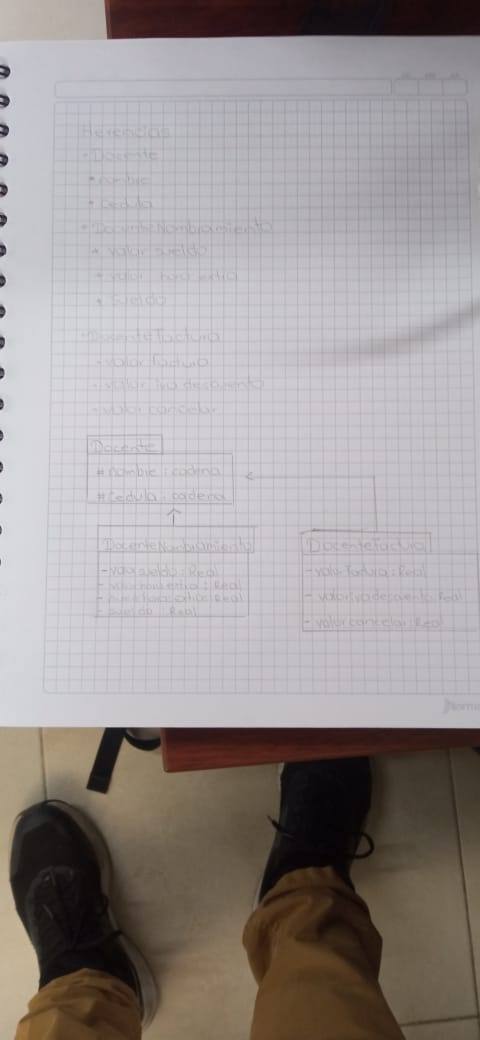 Herencias
- Docente
* nombre
* cedula
* DocenteNombramiento
* valor sueldo
* valor hora extra
* sueldo
- Docente Factura
- valor factura
- valor iva descuento
- valor cancelar
Docente
# nombre : cadena
# cedula : cadena
DocenteNombramiento
- valorsueldo : Real
- valorhoraextra : Real
: Real
- sueldo : Real
DocenteFactura
- valorfactura : Real
- valorivadescuento : Real
- valorcancelar : Real
Norma